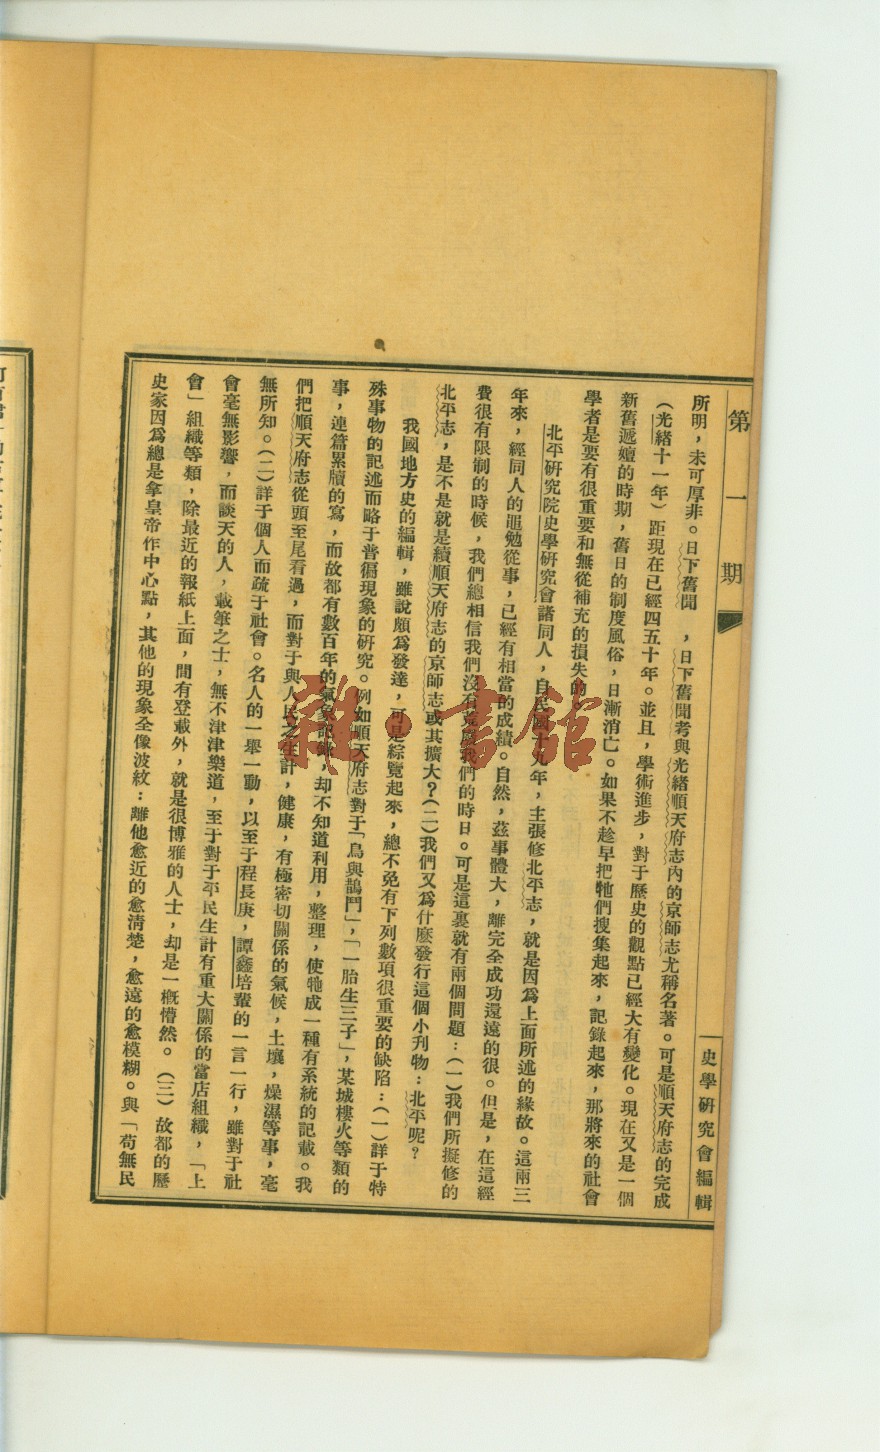 第一期
史學研究會編輯
所明，未可厚非。日下舊聞　，日下舊聞考與光緒順天府志內的京師志尤稱名著。可是順天府志的完成
（光緒十一年）距現在已經四五十年。並且，學術進步，對于歷史的觀點已經大有變化。現在又是一個
新舊遞嬗的時期，舊日的制度風俗，日漸消亡。如果不趁早把牠們搜集起來，記錄起來，那將來的社會
學者是要有很重要和無從補充的損失的。
北平研究院史學研究會諸同人，自民國十九年，主張修北平志，就是因爲上面所述的緣故。這兩三
年來，經同人的黽勉從事，已經有相當的成績。自然，茲事體大，離完全成功還遠的很。但是，在這經
費很有限制的時候，我們總相信我們沒有荒廢我們的時日。可是這裏就有兩個問題：（一）我們所擬修的
北平志，是不是就是續順天府志的京師志或其擴大？（二）我們又爲什麽發行這個小刋物：北平呢？
我國地方史的編輯，雖說頗爲發達，可是綜覽起來，總不免有下列數項很重要的缺陷：（一）詳于特
殊事物的記述而略于普徧現象的研究。例如順天府志對于「鳥與鵲鬥」，「一胎生三子」，某城樓火等類的
事，連篇累牘的寫，而故都有數百年的氣象記錄，却不知道利用，整理，使牠成一種有系統的記載。我
們把順天府志從頭至尾看過，而對于與人民之生計，健康，有極密切關係的氣候，土壤，燥濕等事，毫
無所知。（二）詳于個人而疏于社會。名人的一舉一動，以至于程長庚，譚鑫培輩的一言一行，雖對于社
會毫無影響，而談天的人，載筆之士，無不津津樂道，至于對于平民生計有重大關係的當店組織，「上
會」組織等類，除最近的報紙上面，間有登載外，就是很博雅的人士，却是一概懵然。（三）故都的歷
史家因爲總是拿皇帝作中心點，其他的現象全像波紋：離他愈近的愈清楚，愈遠的愈模糊。與「苟無民
雜·書館